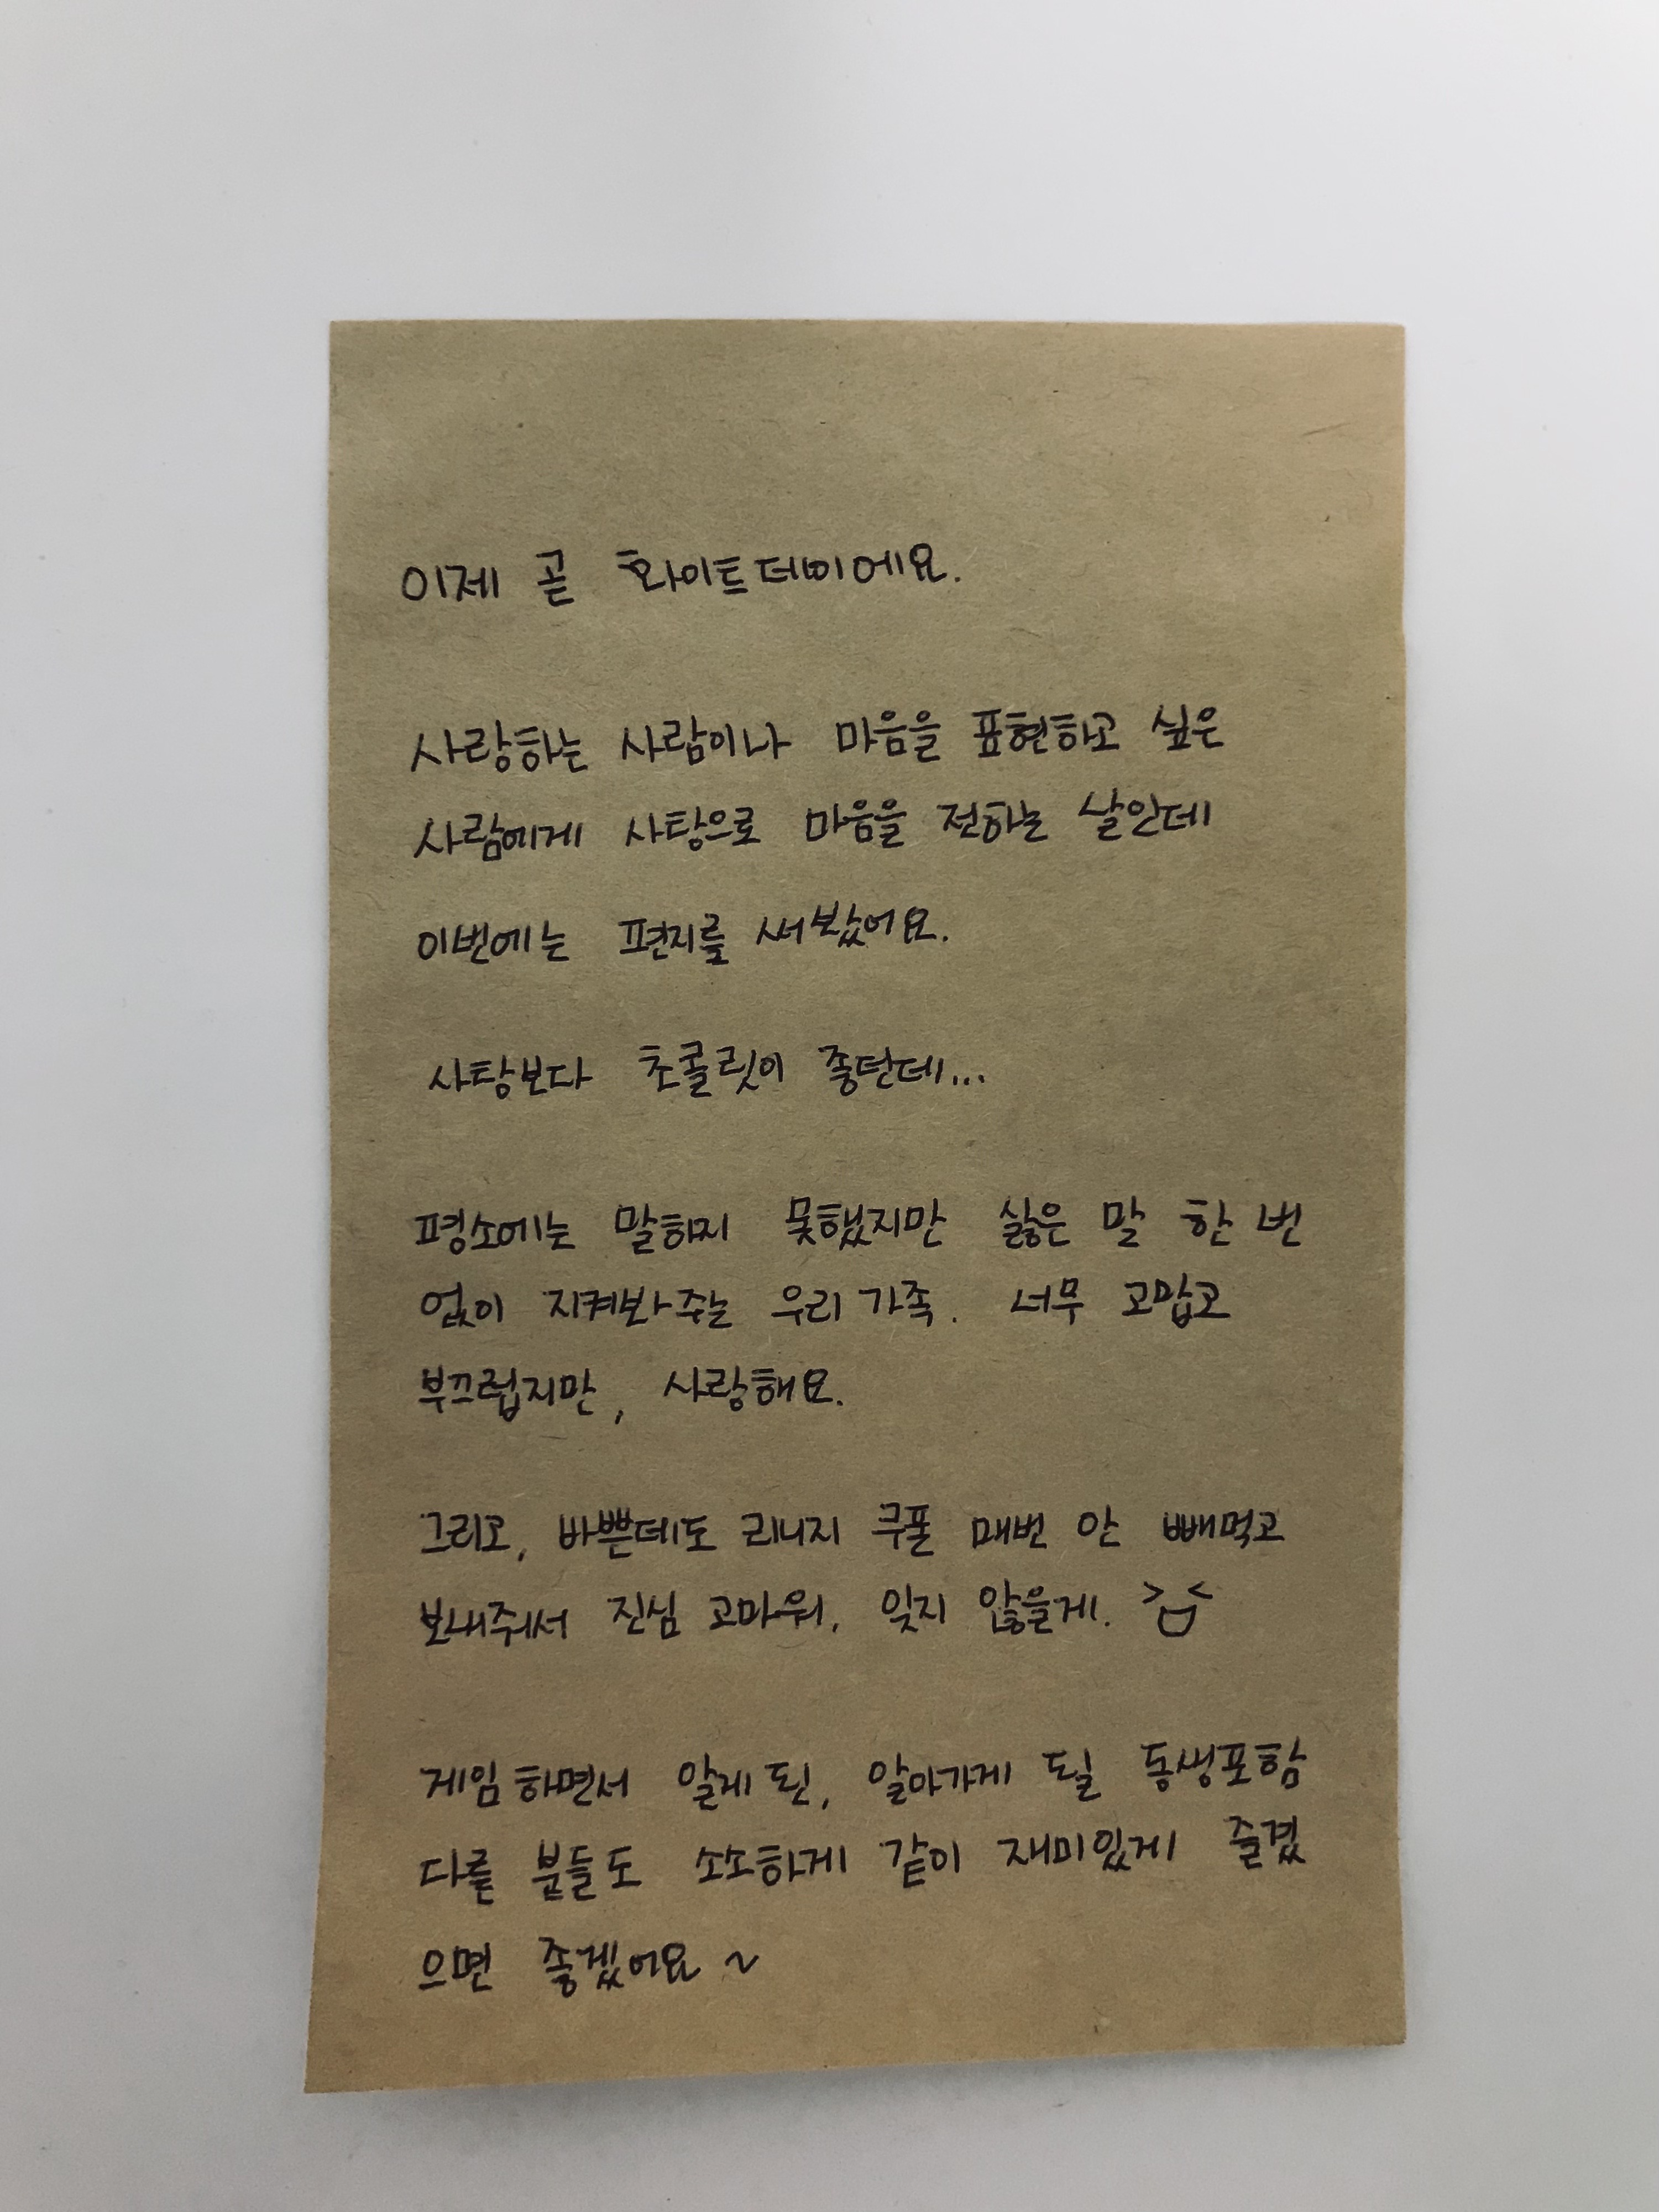 이제 곧 화이트데이에요.
사랑하는 사람이나 마음을 표현하고 싶은
사람에게 사탕으로 마음을 전하는 날인데
이번에는 편지를 써봤어요.
사탕보다 초콜릿이 좋탄데...
평소에는 말하지 못했지만 싫은 말 한 번
없이 지켜봐 주는 우리 가족. 너무 고맙고
부끄럽지만, 사랑해요.
그리고, 바쁜데도 리니지 쿠폰 매번 안 빼먹고
보내줘서 진심 고마워. 잊지 않을게.
게임하면서 알게 된, 알아가게 될 동생포함
다른 분들도 소소하게 같이 재미있게 즐겼
으면 좋겠어요 ~